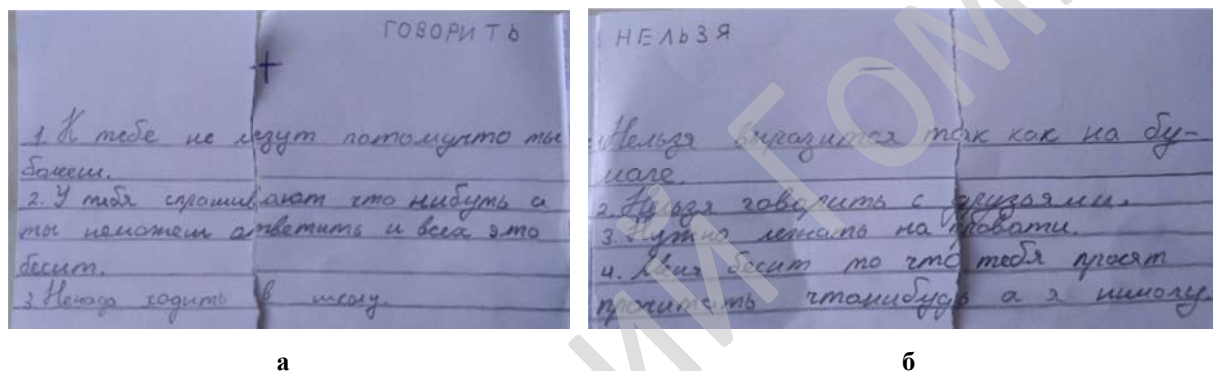 ГОВОРИТЬ
+
1. К тебе не лезут потомучто ты
болееш.
2. У тебя спрашивают что нибуть а
ты неможеш ответить и всех это
бесит.
3 Ненада ходить в школу.
а
НЕЛЬЗЯ
—
1. Нельзя выразится так как на бу-
маге.
2. Нельзя говорить с друзьями.
3. Нужно лежать на кровати.
4. Меня бесит то что тебя просят
прочитать чтонибудь а я нимогу.
б
ИЙ ГОМ